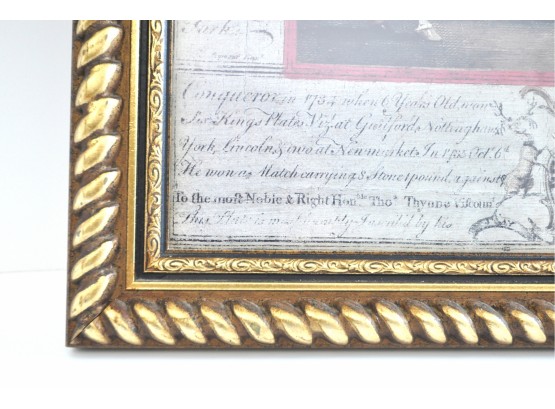 Conqueror in 1734 when 6 Years Old, won
Six Kings Plates Viz. at Guilford, Nottengham
York, Lincoln & two at Newmarket. In Oct. 6
He won a Match carrying 8 Stone 1 pound, against
To the most Noble & Right Hon.ble Tho.s Thynne Viscount
This Plate is most humbly Inscrib'd by his